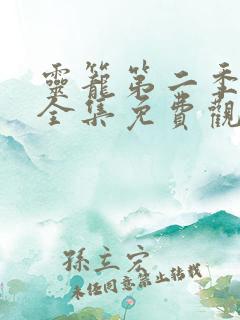 靈籠第二季
全集免費觀
孫立宏
未經同意禁止轉載